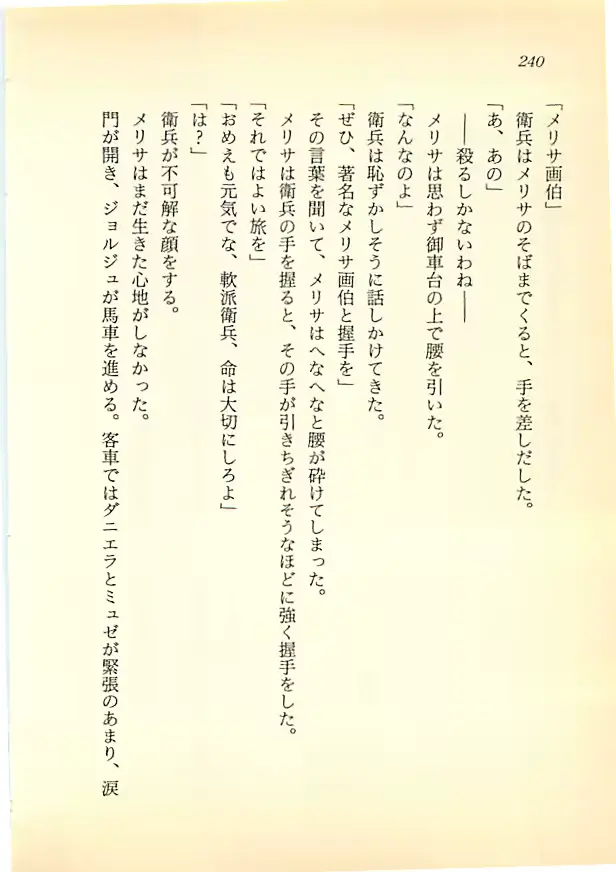 240
「メリサ画伯」
衛兵はメリサのそばまでくると、手を差しだした。
「あ、あの」
――殺るしかないわね――
メリサは思わず御車台の上で腰を引いた。
「なんなのよ」
衛兵は恥ずかしそうに話しかけてきた。
「ぜひ、著名なメリサ画伯と握手を」
その言葉を聞いて、メリサはへなへなと腰が砕けてしまった。
メリサは衛兵の手を握ると、その手が引きちぎれそうなほどに強く握手をした。
「それではよい旅を」
「おめえも元気でな、軟派衛兵、命は大切にしろよ」
「は?」
衛兵が不可解な顔をする。
メリサはまだ生きた心地がしなかった。
門が開き、ジョルジュが馬車を進める。客車ではダニエラとミュゼが緊張のあまり、涙